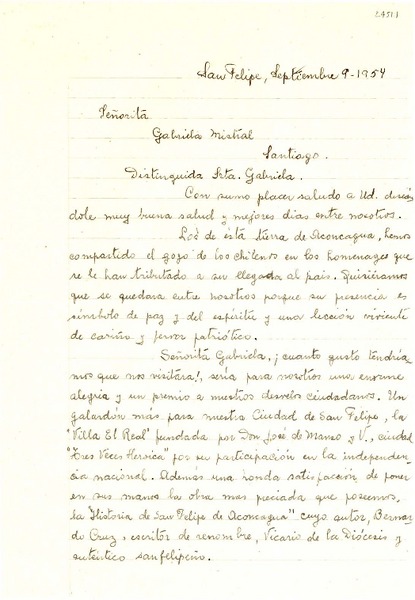 24511
San Felipe, Septiembre 9-1954
Señorita
Gabriela Mistral
Santiago.
Distinguida Srta. Gabriela.
Con sumo placer saludo a Ud. deseán
dole muy buena salud y mejores dias entre nosotros.
de esta tierra de Aconcagua, hemos
compartido el gozo de los chilenos en los homenages que
se le han tributado a su llegada al país. Quisiéramos
que se quedara entre nosotros porque su presencia es
símbolo de paz y del espíritu y una lección viviente
de cariño y fervor patriótico.
Señorita Gabriela, ¡cuanto gusto tendría
mos que nos visitára!, sería para nosotros una enorme
alegria y un premio a nuestros desvelos ciudadanos. Un
galardón más para nuestra Ciudad de San Felipe, la
"Villa El Real" fundada por Don José de Manso y V., ciudad
"Tres Veces Heroica" por su participación en la independen
cia nacional. Además una honda satisfacción de poner
en sus manos la obra mas preciada que poseemos,
la "Historia de San Felipe de Aconcagua" cuyo autor, Bernar
do Cruz, escritor de renombre, Vicario de la Diócesis y
auténtico sanfelipeño.